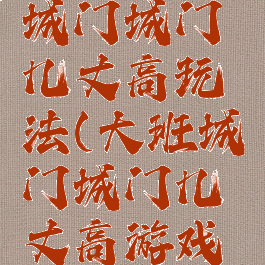 城门城门
几丈高玩
法(大班城
门城门几
丈高游戏